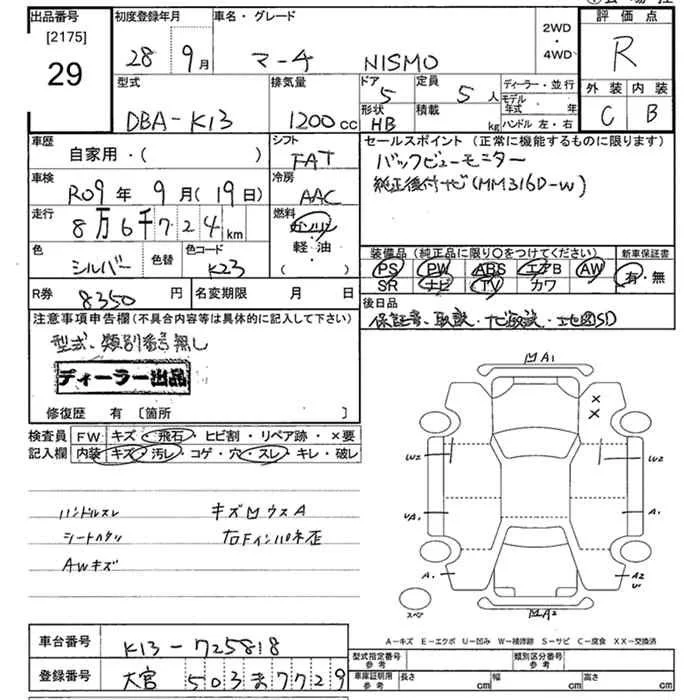 出品番号
[2175]
29
初度登録年月
28 9月
車名・グレード
マーチ NISMO
2WD
・
4WD
評価点
R
外装 内装
C B
型式
DBA-K13
排気量
1200cc
ドア
5
定員
5人
形状
HB
積載
kg
ディーラー・並行
モデル年式 年
ハンドル 左・右
車歴
自家用・( )
シフト
FAT
車検
R09年 9月(19日)
冷房
AAC
走行
8万6千724km
燃料
ガソリン
軽・油
( )
色
シルバー
色替
色コード
K23
R券
8350円
名変期限 月 日
セールスポイント(正常に機能するものに限ります)
バックビューモニター
純正後付ナビ(MM316D-W)
装備品(純正品に限り○をつけてください)
PS PW ABS エアB AW
SR ナビ TV カワ
新車保証書
有・無
後日品
保証書、取説、ナビ取説・地図SD
注意事項申告欄(不具合内容等は具体的に記入して下さい)
型式、類別番号無し
ディーラー出品
修復歴 有 〔箇所 〕
検査員記入欄
FW キズ・飛石・ヒビ割・リペア跡・×要
内装 キズ・汚レ・コゲ・穴・スレ・キレ・破レ
ハンドルスレ キズ凹ウスA
シートヘタリ 右Fインパネ歪
AWキズ
凹A1
×
×
W2
W2
A1
A1
A2
U
スペア
凹A2
A-キズ E-エクボ U-凹み W-補修跡 S-サビ C-腐食 XX-交換済
車台番号
K13-725818
登録番号
大宮 503ま7729
型式指定番号
参考
類別区分番号
参考
車庫証明用
参考
長さ cm 幅 cm 高さ cm